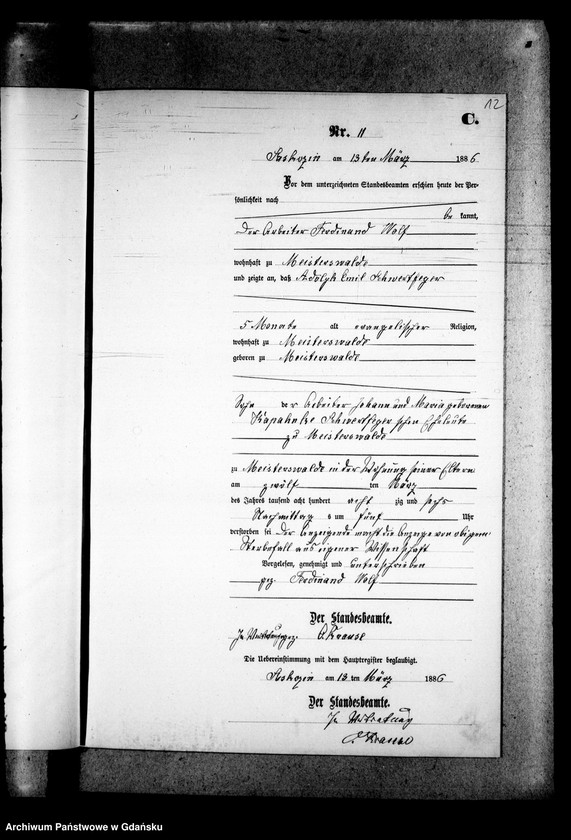 12
C.
Nr. 11
am 13ten März 1886
Vor dem unterzeichneten Standesbeamten erschien heute der Per-
sönlichkeit nach
be kannt,
Der Arbeiter Ferdinand Wolf
wohnhaft zu Meisterswalde
und zeigte an, daß Adolph Emil Schwertfeger
5 Monate alt evangelischer Religion,
wohnhaft zu Meisterswalde
geboren zu Meisterswalde
Sohn der Arbeiter Johann und Maria geborenen
Schwertfeger'schen Eheleute
zu Meisterswalde
zu Meisterswalde in der Wohnung seiner Eltern
am zwölf ten März
des Jahres tausend acht hundert acht zig und sechs
Nachmittag s um fünf Uhr
verstorben sei Der Anzeigende macht die Anzeige von obigem
Sterbefall aus eigener Wissenschaft
Vorgelesen, genehmigt und unterschrieben
gez. Ferdinand Wolf
Der Standesbeamte.
In Vertretung gez. Krause
Die Uebereinstimmung mit dem Hauptregister beglaubigt.
am 13 ten März 1886
Der Standesbeamte.
In Vertretung
Krause
Archiwum Państwowe w Gdańsku